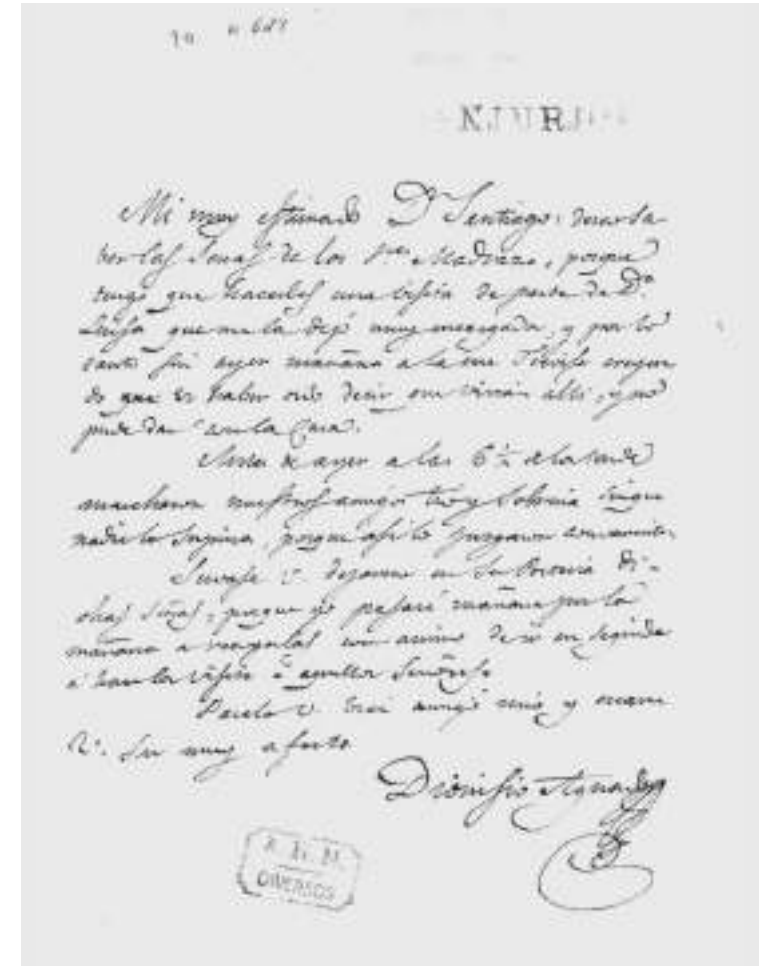 Mi muy estimado Dn Santiago: deseo sa-
ber las señas de los Sres Madrazo, porque
tengo que hacerles una visita de parte de Da
Luisa que me la dejó muy encargada, y por lo
tanto fui ayer mañana a la creyen
do que es haber oido decir que vivian alli, y no
pude dar con la Casa.
de ayer a las 6 1/2 de la tarde
marcharon nuestros amigos y sin que
nadie lo supiera, porque asi lo juzgaron conveniente.
Sirvase V. dejarme en su Porteria di-
chas señas, porque yo pasaré mañana por la
mañana a recogerlas con animo de ir en seguida
a hacer la visita á aquellos Señores.
Paselo V. bien amigo mio y mande
V. su muy afecto
Dionisio Aguado
A. H. N.
DIVERSOS